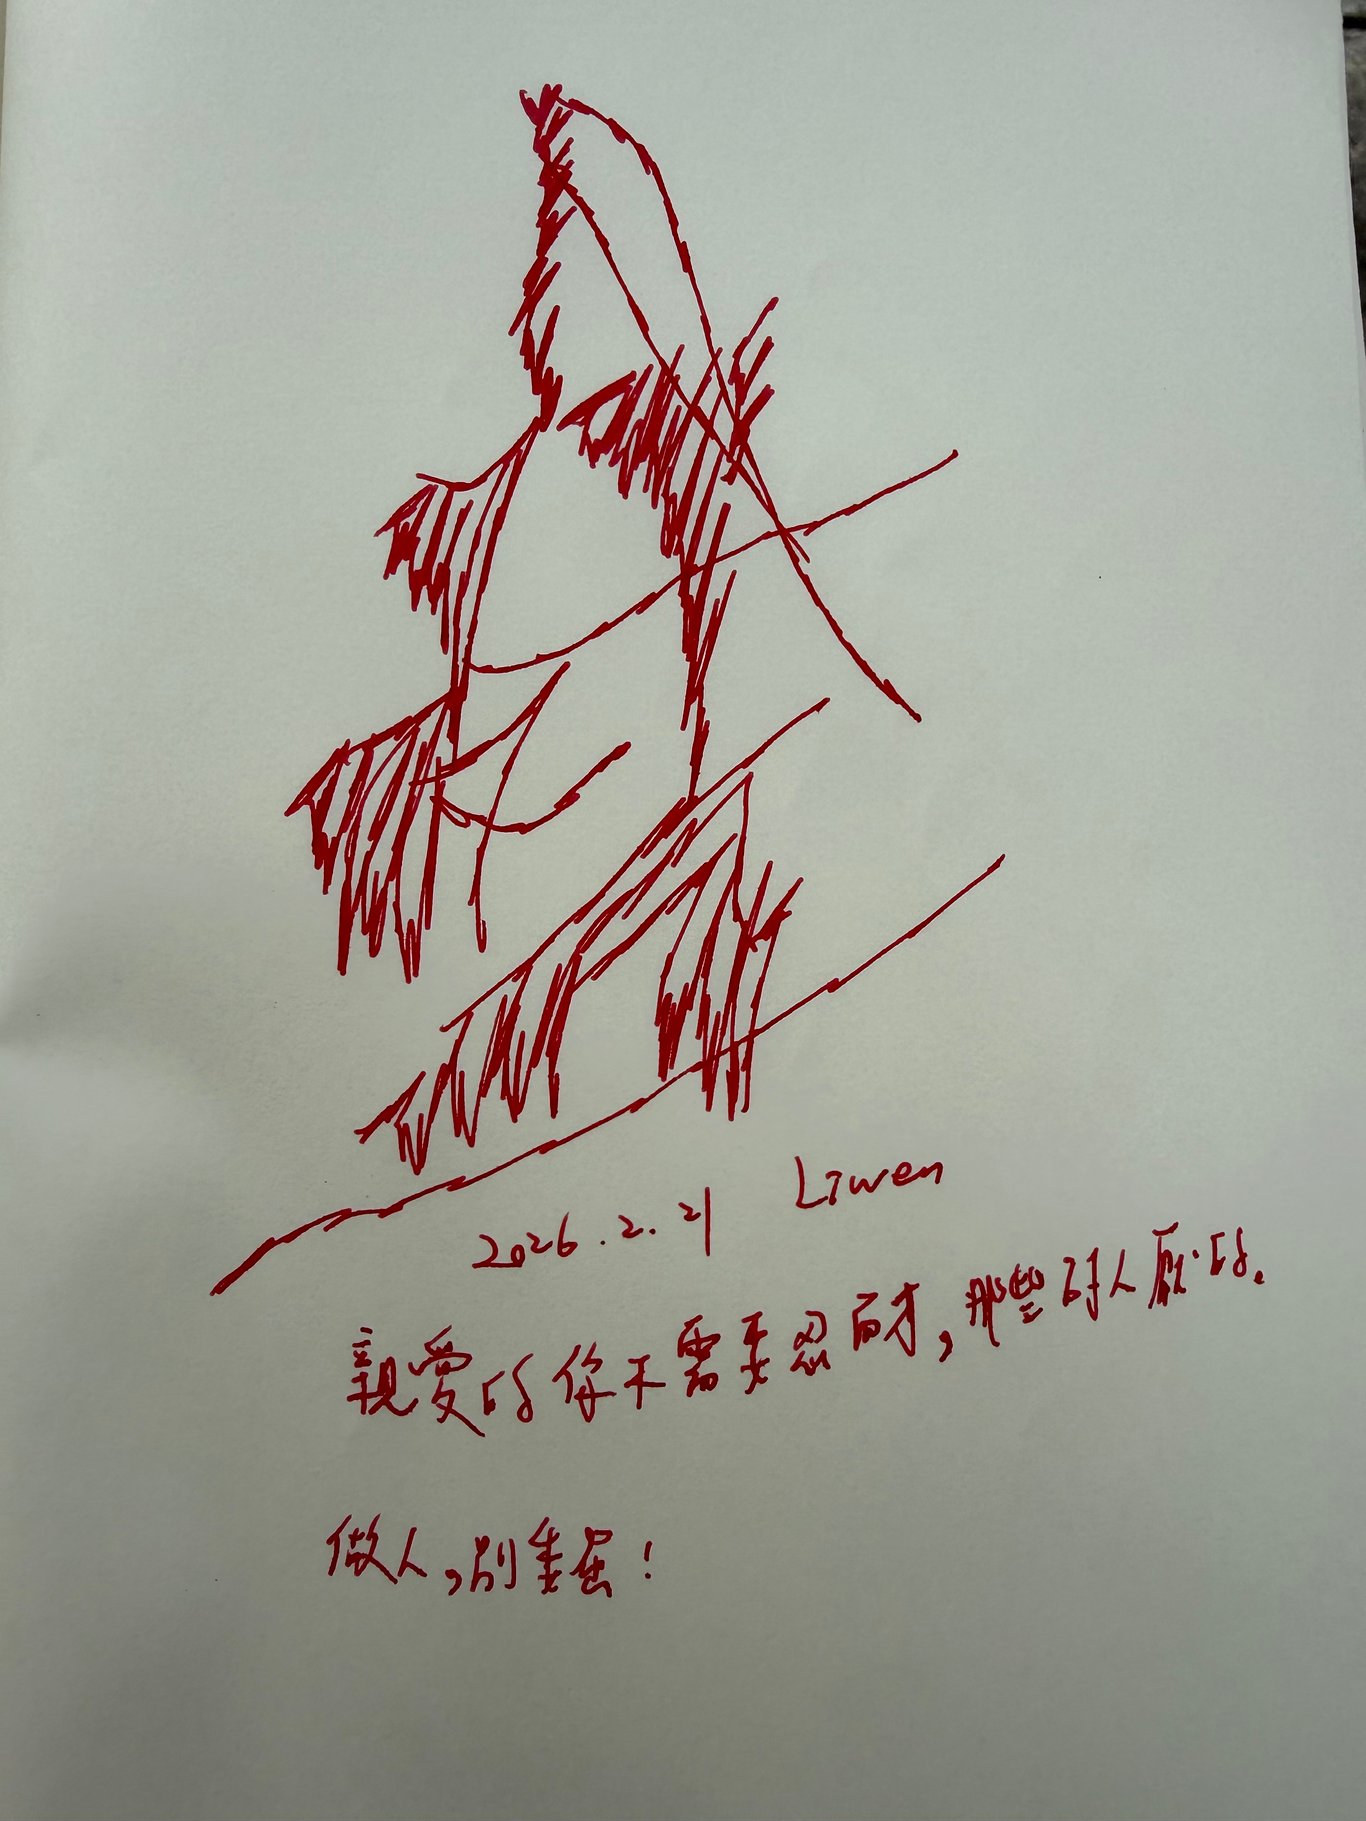 2026.2.21 Liwen
親愛的你不需要忍耐，那些討人厭的。
做人，別委屈！